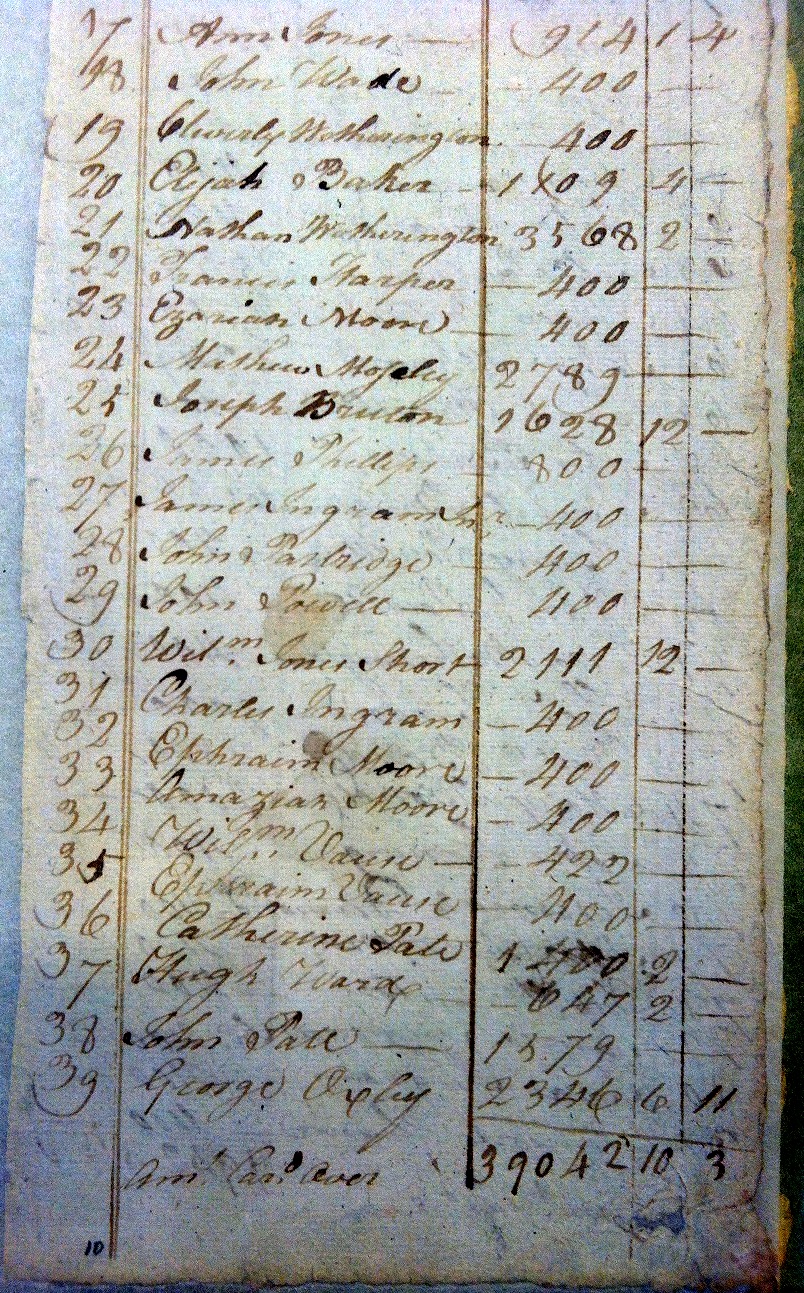 17 Ann Jones — 914 1 4
18 John Wade — 400 —
19 Cleverly Wetherington 400 —
20 Elijah Baker — 1109 4 —
21 Nathan Wetherington 3568 2 —
22 Francis Harper — 400 —
23 Ezariah Moore — 400 —
24 Mathew Mosely 2789 —
25 Joseph Bruton 1628 12 —
26 James Phillips — 800 —
27 James Ingram Jnr — 400 —
28 John Partridge — 400 —
29 John Powell — 400 —
30 Wilm. Jones Short 2111 12 —
31 Charles Ingram — 400 —
32 Ephraim Moore — 400 —
33 Amaziah Moore — 400 —
34 Wilm. Vause — 422 —
35 Ephraim Vause — 400 —
36 Catherine Pate 1400 2 —
37 Hugh Ward — 647 2 —
38 John Pate — 1579 —
39 George Oxley 2346 6 11
Amt. Card. over 39042 10 3
10